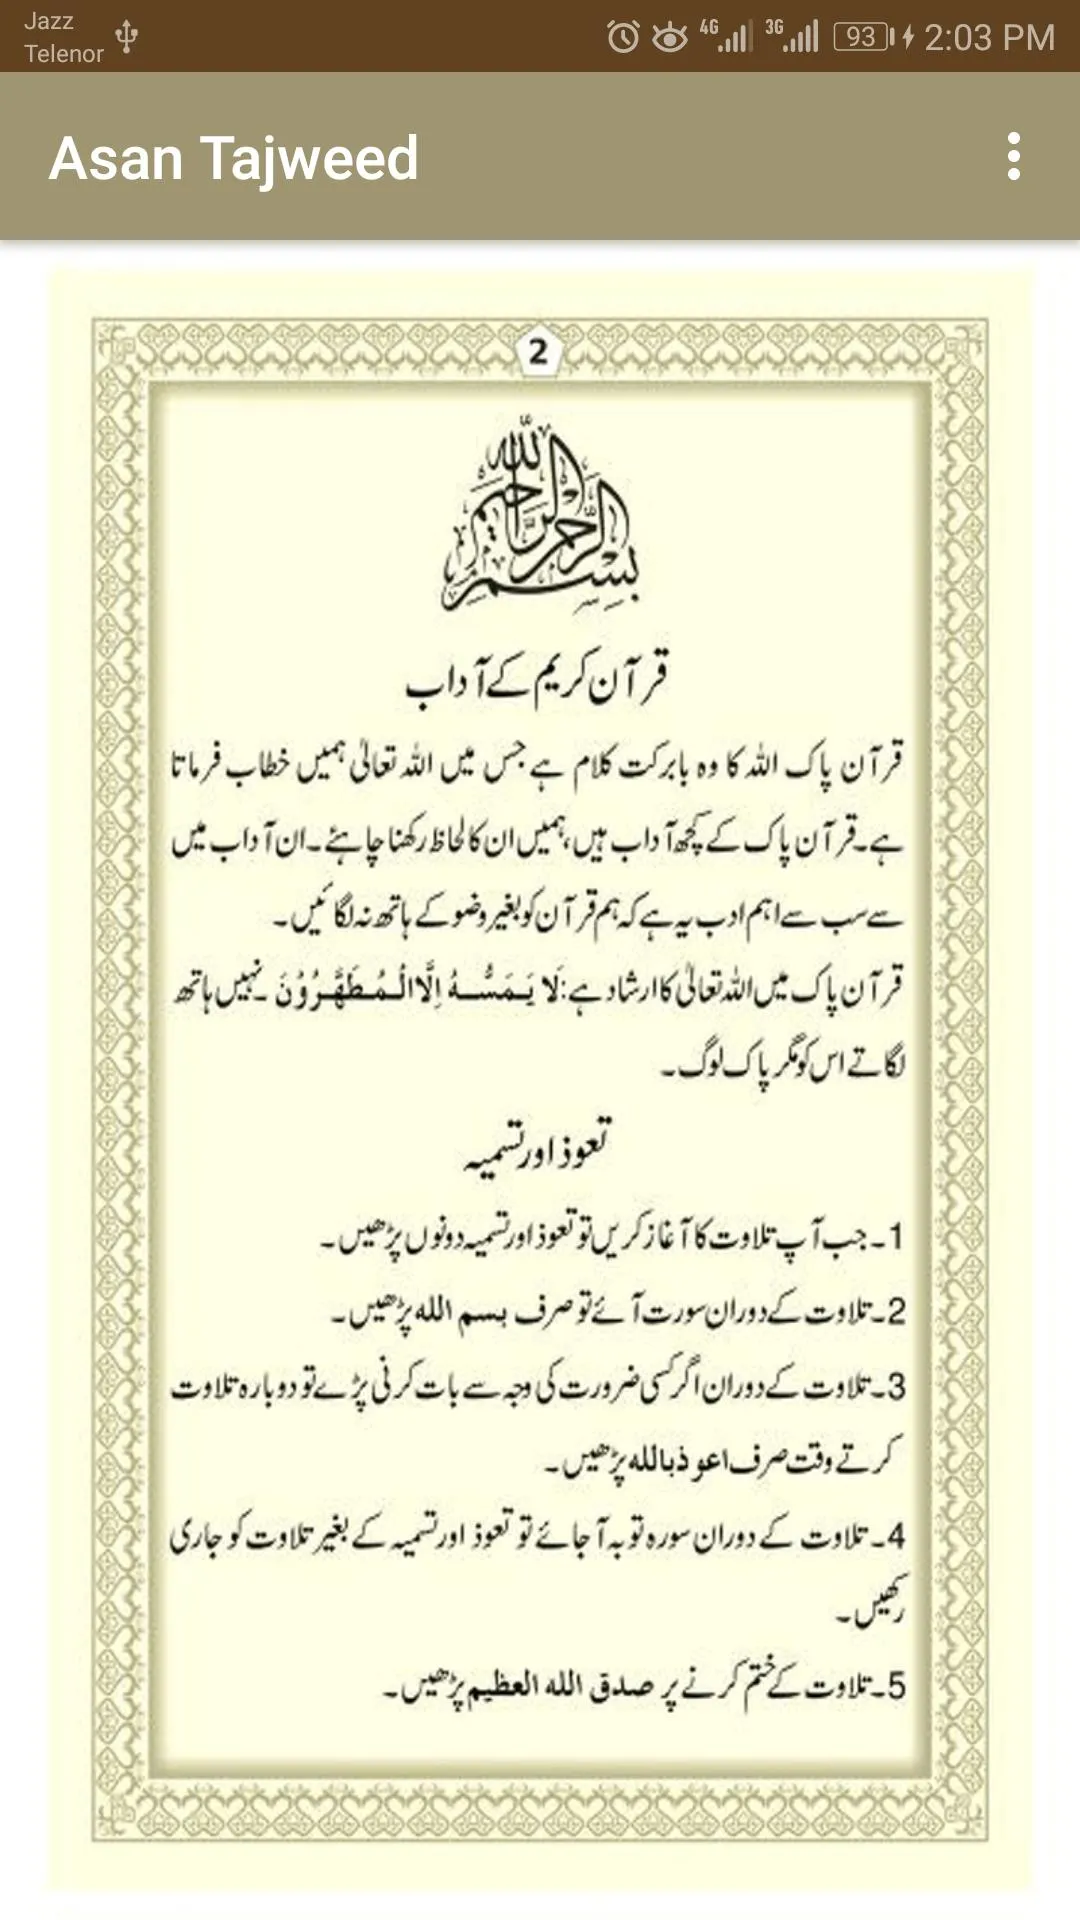 Jazz
Telenor
4G 3G 93 2:03 PM
Asan Tajweed
2
بسم الله الرحمن الرحيم
قرآن کریم کے آداب
قرآن پاک اللہ کا وہ بابرکت کلام ہے جس میں اللہ تعالیٰ ہمیں خطاب فرماتا
ہے۔قرآن پاک کے کچھ آداب ہیں،ہمیں ان کا لحاظ رکھنا چاہئے۔ان آداب میں
سے سب سے اہم ادب یہ ہے کہ ہم قرآن کو بغیر وضو کے ہاتھ نہ لگائیں۔
قرآن پاک میں اللہ تعالیٰ کا ارشاد ہے:لَا يَمَسُّهُ اِلَّا الْمُطَهَّرُوْنَ ۔نہیں ہاتھ
لگاتے اس کو مگر پاک لوگ۔
تعوذ اور تسمیہ
1۔جب آپ تلاوت کا آغاز کریں تو تعوذ اور تسمیہ دونوں پڑھیں۔
2۔تلاوت کے دوران سورت آئے تو صرف بسم الله پڑھیں۔
3۔تلاوت کے دوران اگر کسی ضرورت کی وجہ سے بات کرنی پڑے تو دوبارہ تلاوت
کرتے وقت صرف اعوذ بالله پڑھیں۔
4۔تلاوت کے دوران سورہ توبہ آجائے تو تعوذ اور تسمیہ کے بغیر تلاوت کو جاری
رکھیں۔
5۔تلاوت کے ختم کرنے پر صدق الله العظيم پڑھیں۔